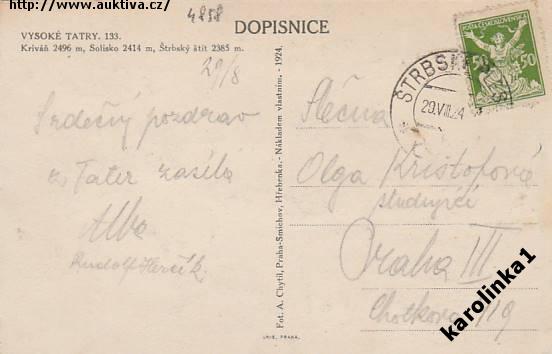 http://www.auktiva.cz/
4858
DOPISNICE
VYSOKÉ TATRY. 133.
Kriváň 2496 m, Solisko 2414 m, Štrbský štít 2385 m.
29/8
Srdečný pozdrav
z Tater zasílá
Rudolf
Fot. A. Chytil, Praha-Smíchov, Hřebenka.- Nákladem vlastním. - 1924.
UNIE, PRAHA.
POŠTA ČESKOSLOVENSKÁ
50 50
ŠTRBSKÉ
29.VIII.24
Slečna
Olga Kristofová
studující
Praha III
Chotkova 19
karolinka1